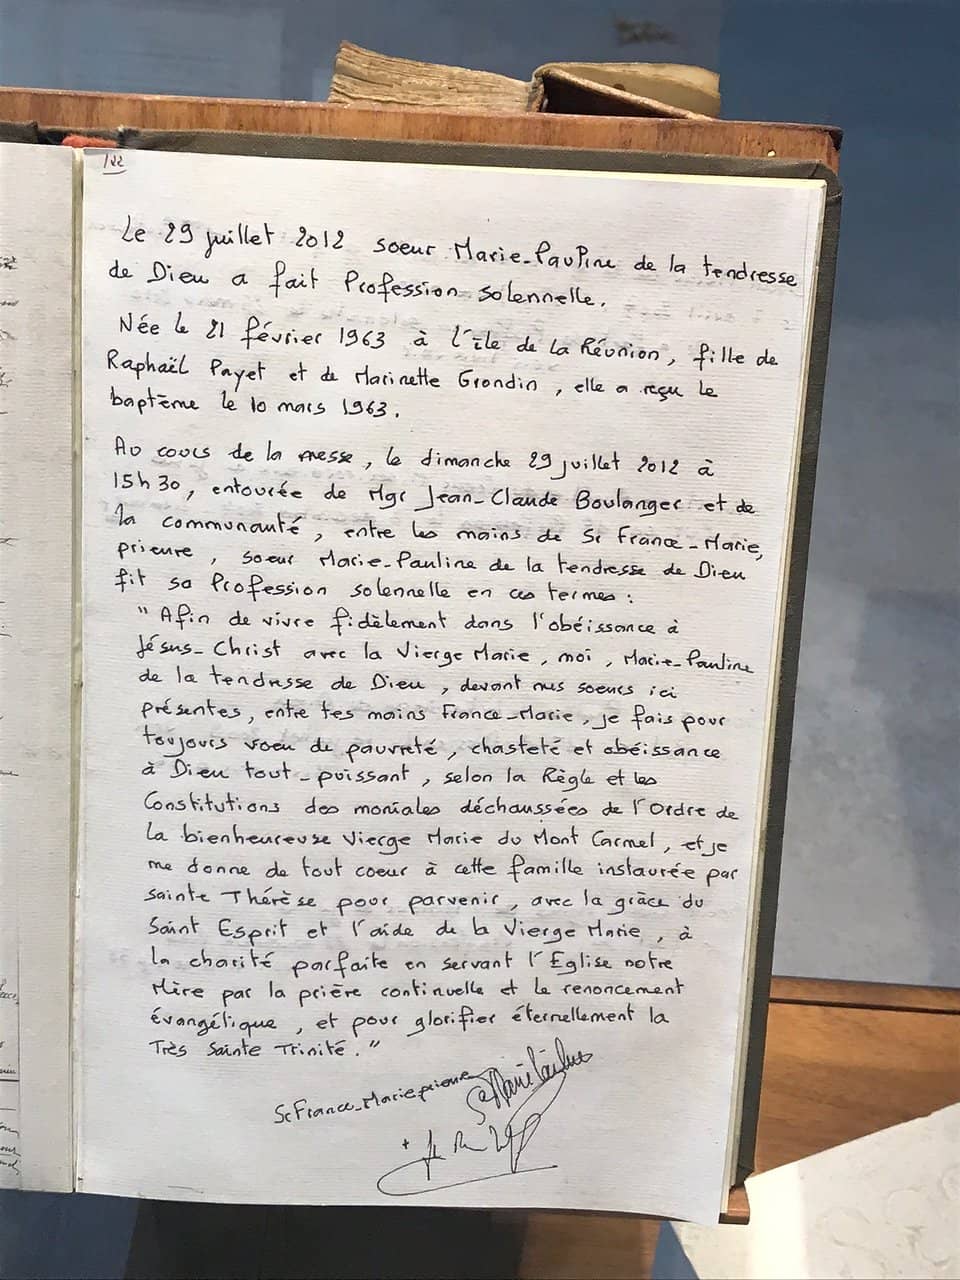 122
Le 29 juillet 2012 soeur Marie-Pauline de la tendresse
de Dieu a fait Profession solennelle.
Née le 21 février 1963 à l'île de la Réunion, fille de
Raphaël Payet et de Marinette Grondin, elle a reçu le
baptême le 10 mars 1963.
Au cours de la messe, le dimanche 29 juillet 2012 à
15h30, entourée de Mgr Jean-Claude Boulanger et de
la communauté, entre les mains de Sr France-Marie,
prieure, soeur Marie-Pauline de la tendresse de Dieu
fit sa Profession solennelle en ces termes :
" Afin de vivre fidèlement dans l'obéissance à
Jésus-Christ avec la Vierge Marie, moi, Marie-Pauline
de la tendresse de Dieu, devant nos soeurs ici
présentes, entre tes mains France-Marie, je fais pour
toujours voeu de pauvreté, chasteté et obéissance
à Dieu tout-puissant, selon la Règle et les
Constitutions des moniales déchaussées de l'Ordre de
la bienheureuse Vierge Marie du Mont Carmel, et je
me donne de tout coeur à cette famille instaurée par
sainte Thérèse pour parvenir, avec la grâce du
Saint Esprit et l'aide de la Vierge Marie, à
la charité parfaite en servant l'Eglise notre
Mère par la prière continuelle et le renoncement
évangélique, et pour glorifier éternellement la
Très Sainte Trinité. "
Sr France-Marie prieure
Sr Marie Pauline